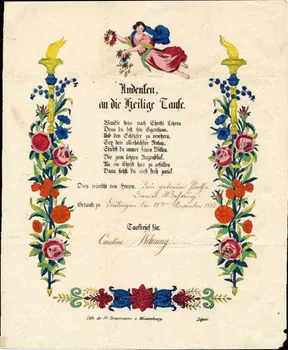 Andenken,
an die Heilige Taufe.
Wandle stets nach Christi Lehren
Denn du bist sein Eigenthum,
Und den Schöpfer zu verehren,
Sey dein allerhöchster Ruhm,
Strebst du immer seinen Willen
Bis zum letzten Augenblick
Als ein Christ hier zu erfüllen
Dann siehst du einst froh zurück
Dies wünscht von Herzen, Dein getreuer Pathe
Daniel
Getauft zu den 19ten November
Taufbrief für
Caroline
Lith. de Fr. Wentzel à Wissembourg